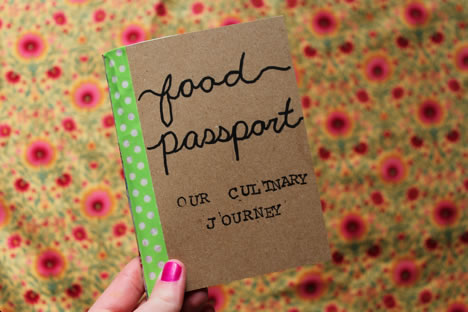 food
passport
OUR CULINARY
JOURNEY